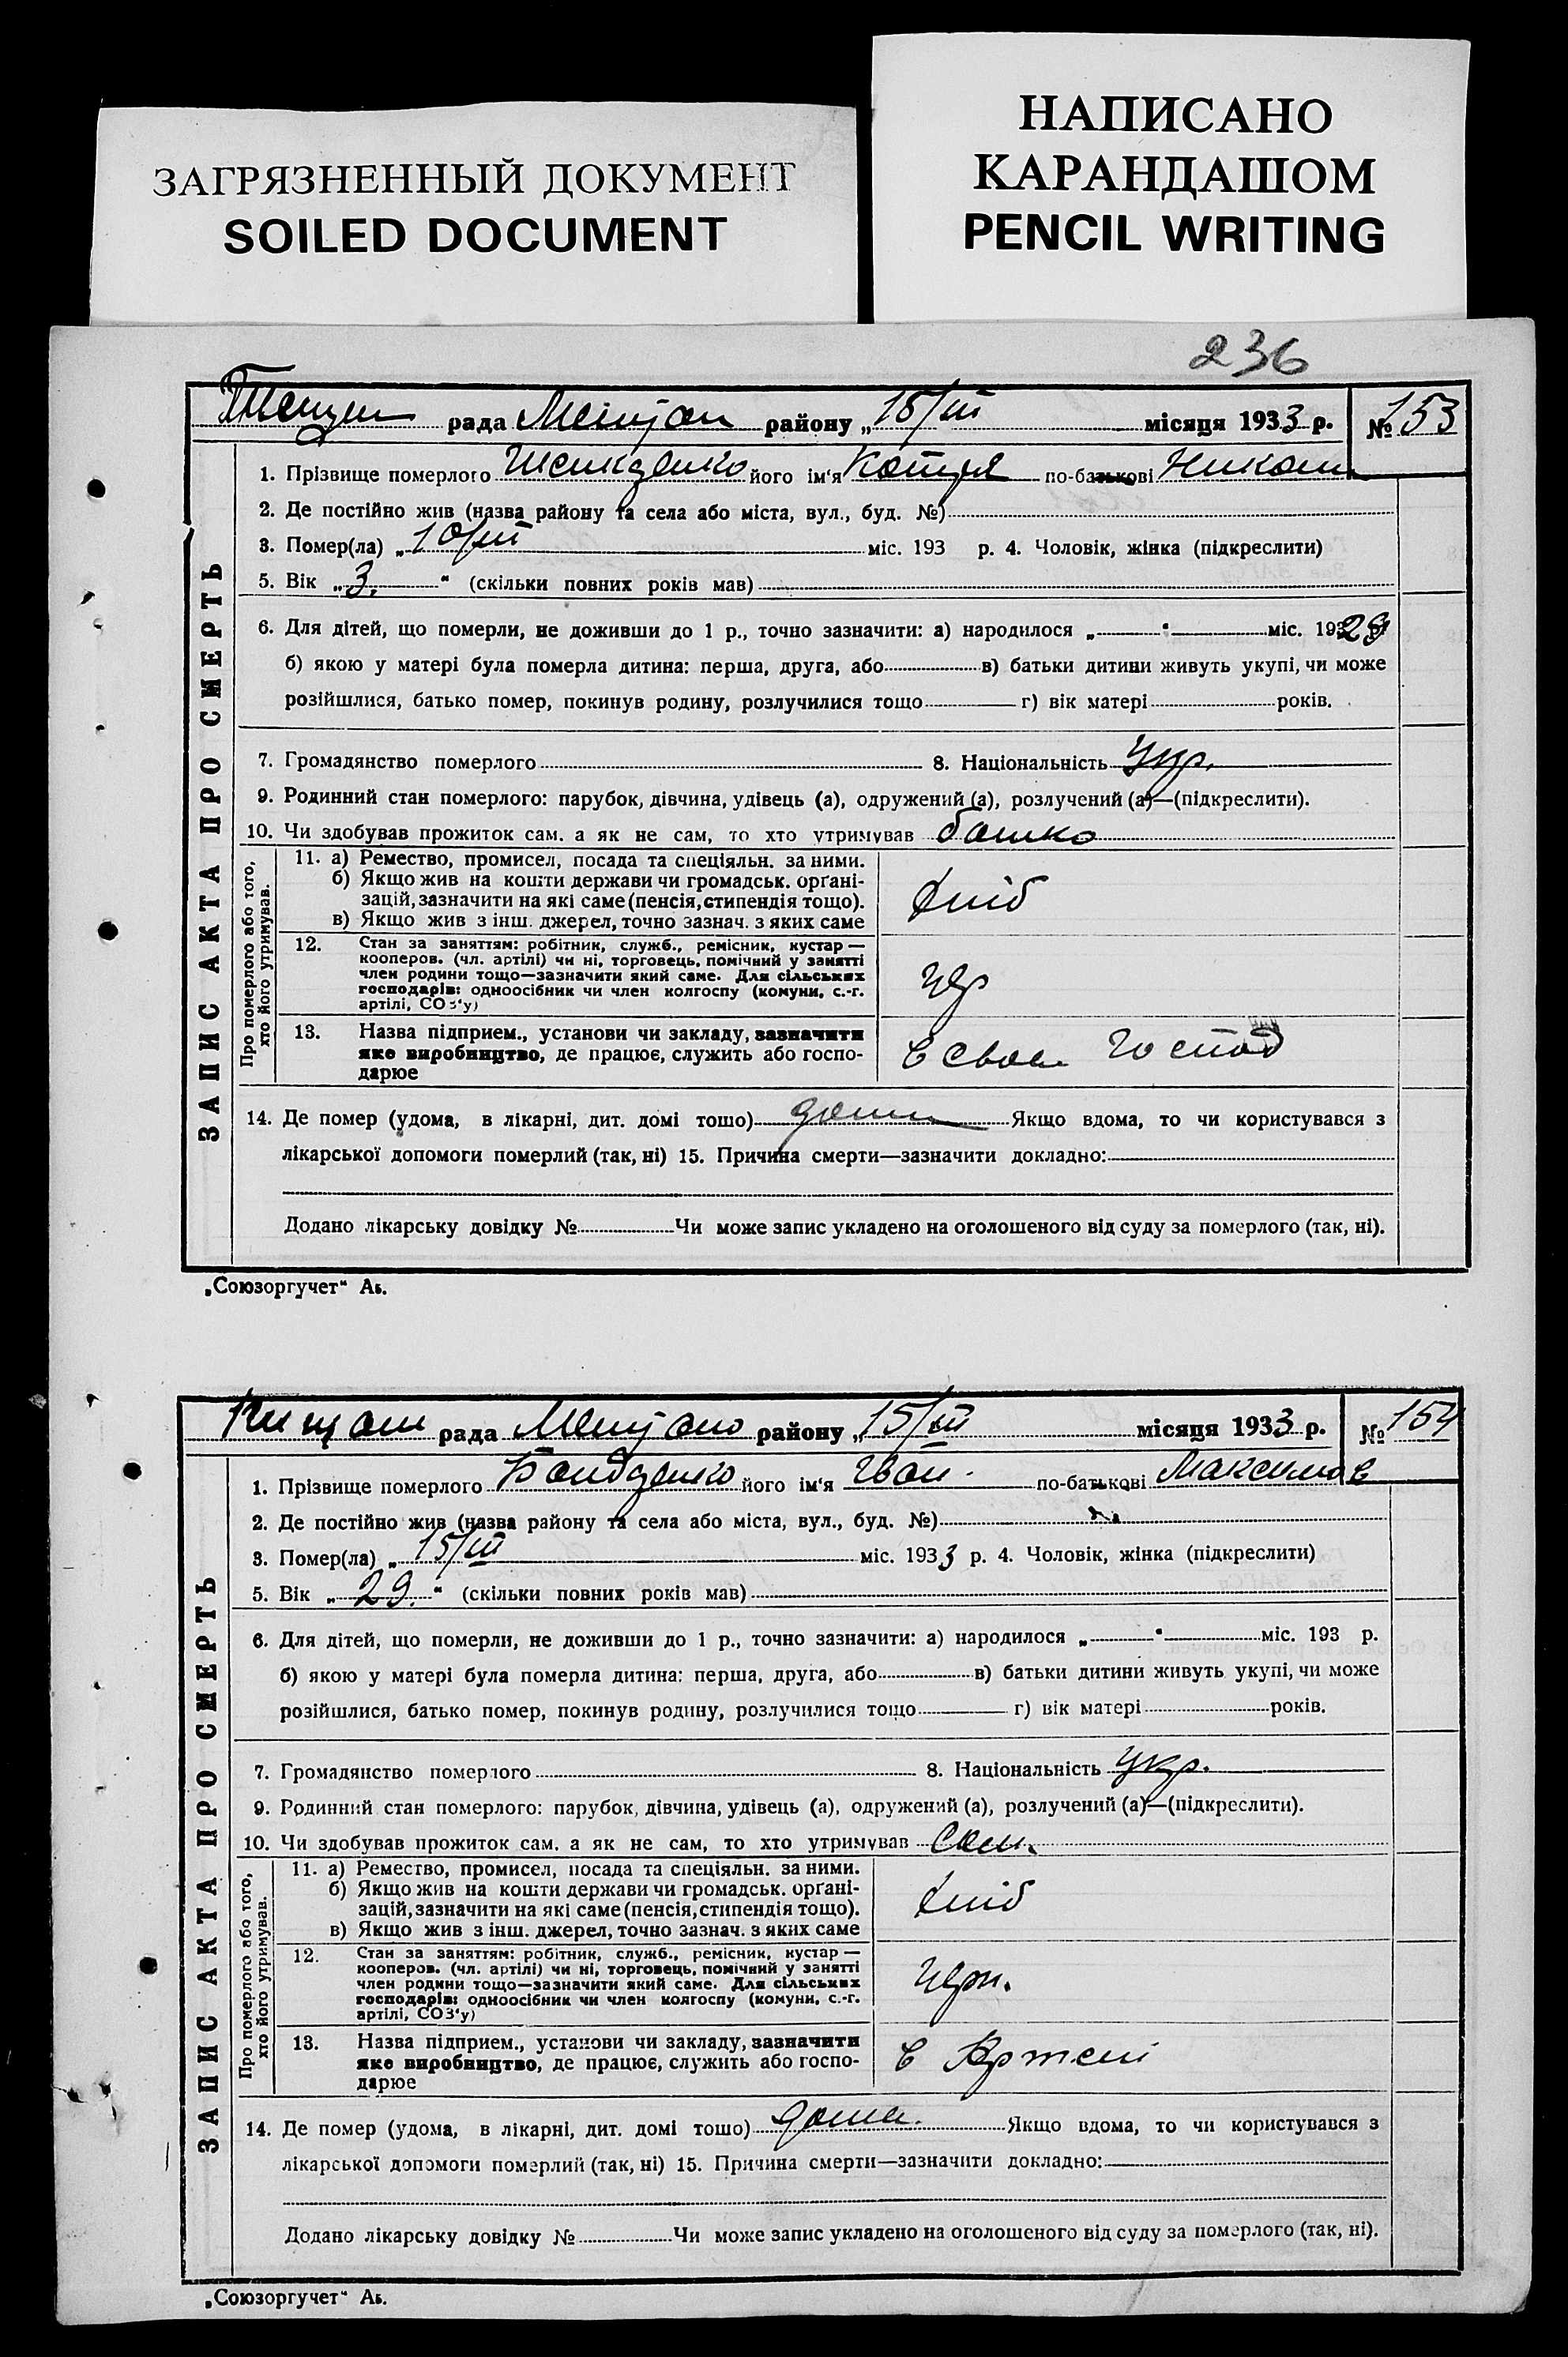 ЗАГРЯЗНЕННЫЙ ДОКУМЕНТ
SOILED DOCUMENT
НАПИСАНО
КАРАНДАШОМ
PENCIL WRITING
236
рада району „15/III місяця 1933 р. № 153
1. Прізвище померлого його ім'я Катря по-батькові
2. Де постійно жив (назва району та села або міста, вул., буд. №)
3. Помер(ла) „10/III міс. 193 р. 4. Чоловік, жінка (підкреслити)
5. Вік „3." (скільки повних років мав)
6. Для дітей, що померли, не доживши до 1 р., точно зазначити: а) народилося „ " міс. 1929
б) якою у матері була померла дитина: перша, друга, або в) батьки дитини живуть укупі, чи може
розійшлися, батько помер, покинув родину, розлучилися тощо г) вік матері років.
7. Громадянство померлого 8. Національність Укр.
9. Родинний стан померлого: парубок, дівчина, удівець (а), одружений (а), розлучений (а)—(підкреслити).
10. Чи здобував прожиток сам, а як не сам, то хто утримував батько
ЗАПИС АКТА ПРО СМЕРТЬ
Про померлого або того,
хто його утримував.
11. а) Ремество, промисел, посада та спеціяльн. за ними.
б) Якщо жив на кошти держави чи громадськ. орґані-
зацій, зазначити на які саме (пенсія, стипендія тощо).
в) Якщо жив з інш. джерел, точно зазнач. з яких саме
хліб
12. Стан за заняттям: робітник, служб., ремісник, кустар —
кооперов. (чл. артілі) чи ні, торговець, помічний у занятті
член родини тощо—зазначити який саме. Для сільських
господарів: одноосібник чи член колгоспу (комуни, с.-г.
артілі, СОЗ'у)
13. Назва підприєм., установи чи закладу, зазначити
яке виробництво, де працює, служить або госпо-
дарює
в своєм господ
14. Де помер (удома, в лікарні, дит. домі тощо) Якщо вдома, то чи користувався з
лікарської допомоги померлий (так, ні) 15. Причина смерти—зазначити докладно:
Додано лікарську довідку № Чи може запис укладено на оголошеного від суду за померлого (так, ні).
„Союзоргучет" Аб.
рада району „15/III місяця 1933 р. № 154
1. Прізвище померлого його ім'я Іван по-батькові Максимов
2. Де постійно жив (назва району та села або міста, вул., буд. №)
3. Помер(ла) „15/III міс. 1933 р. 4. Чоловік, жінка (підкреслити)
5. Вік „29." (скільки повних років мав)
6. Для дітей, що померли, не доживши до 1 р., точно зазначити: а) народилося „ " міс. 193 р.
б) якою у матері була померла дитина: перша, друга, або в) батьки дитини живуть укупі, чи може
розійшлися, батько помер, покинув родину, розлучилися тощо г) вік матері років.
7. Громадянство померлого 8. Національність укр.
9. Родинний стан померлого: парубок, дівчина, удівець (а), одружений (а), розлучений (а)—(підкреслити).
10. Чи здобував прожиток сам, а як не сам, то хто утримував Сам.
ЗАПИС АКТА ПРО СМЕРТЬ
Про померлого або того,
хто його утримував.
11. а) Ремество, промисел, посада та спеціяльн. за ними.
б) Якщо жив на кошти держави чи громадськ. орґані-
зацій, зазначити на які саме (пенсія, стипендія тощо).
в) Якщо жив з інш. джерел, точно зазнач. з яких саме
хліб
12. Стан за заняттям: робітник, служб., ремісник, кустар —
кооперов. (чл. артілі) чи ні, торговець, помічний у занятті
член родини тощо—зазначити який саме. Для сільських
господарів: одноосібник чи член колгоспу (комуни, с.-г.
артілі, СОЗ'у)
13. Назва підприєм., установи чи закладу, зазначити
яке виробництво, де працює, служить або госпо-
дарює
в Артелі
14. Де помер (удома, в лікарні, дит. домі тощо) дома. Якщо вдома, то чи користувався з
лікарської допомоги померлий (так, ні) 15. Причина смерти—зазначити докладно:
Додано лікарську довідку № Чи може запис укладено на оголошеного від суду за померлого (так, ні).
„Союзоргучет" Аб.